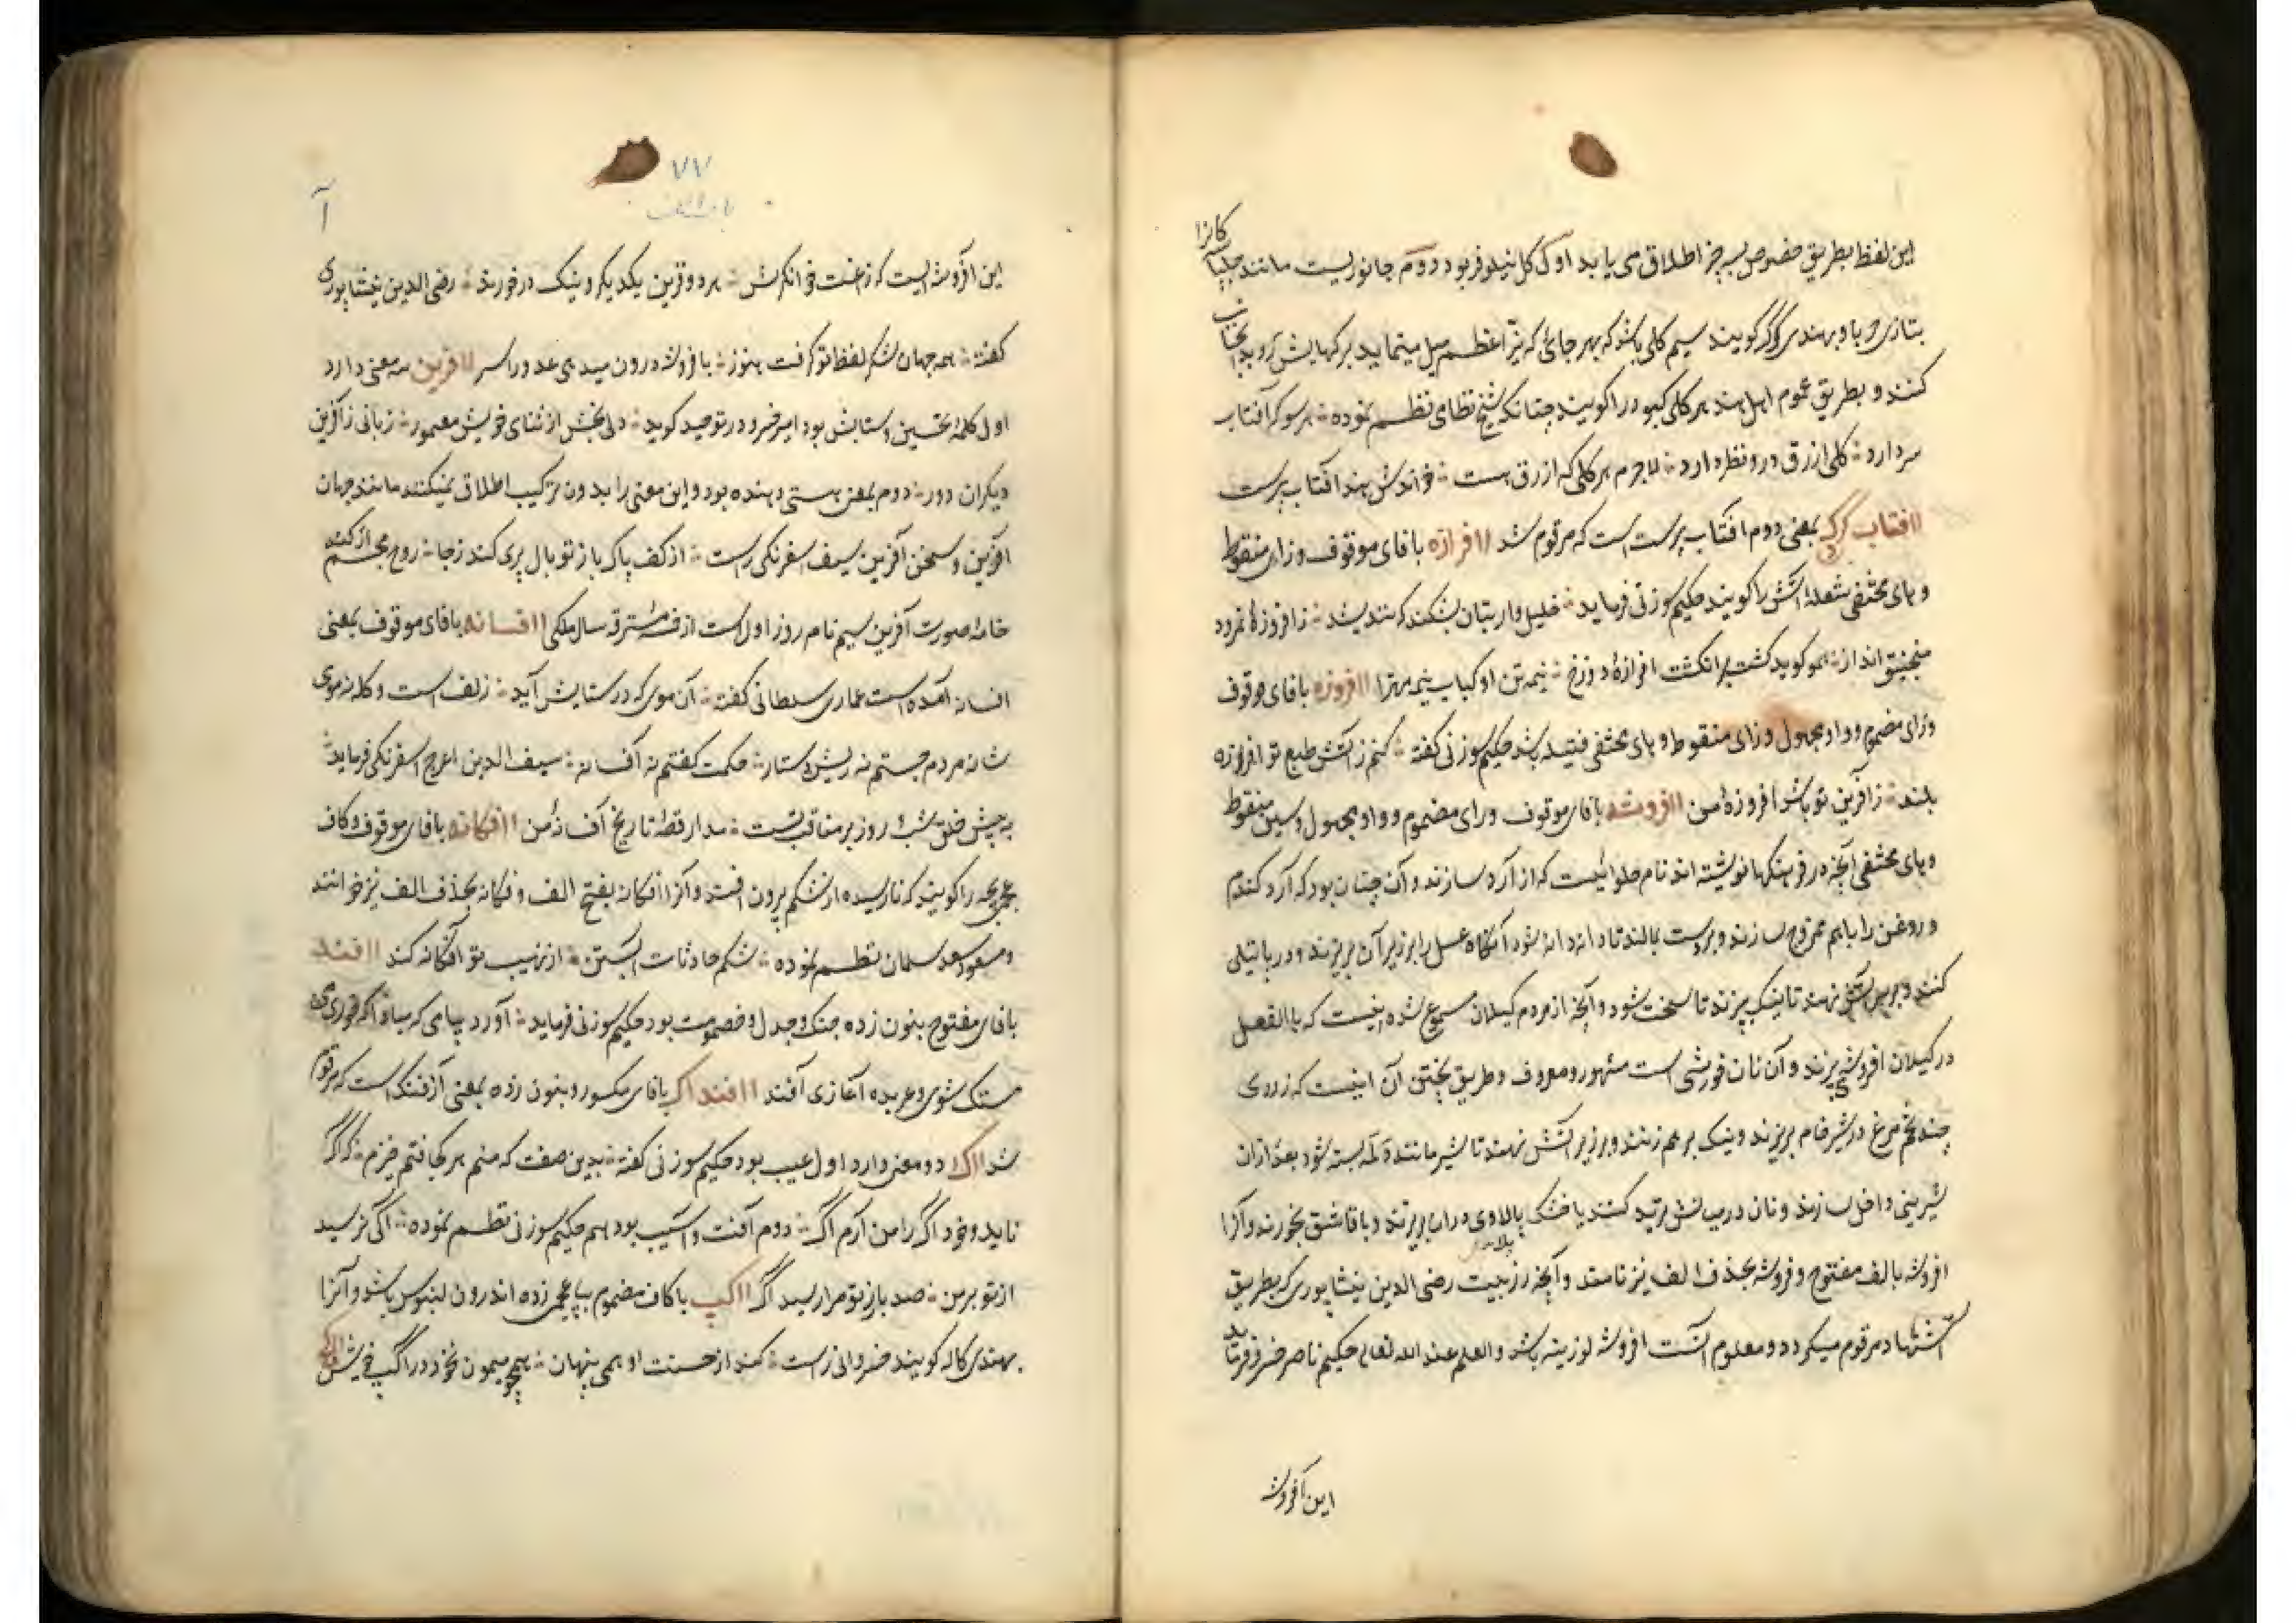 این لفظ بطریق خصوص بسه چیز اطلاق می یابد اول گل نیلوفر بود دوم جانوریست مانند چلپاسه
کانرا
بتازی حربا و بهندی گرگت گویند سیم گلی باشد که بهر جای که نیّر اعظم میل مینماید برگهایش رو بدانجانب
کنند و بطریق عموم اهل هند هر گلی کبود را گویند چنانکه شیخ نظامی نظم نموده هر سو که آفتاب
سر دارد گلی ازرق درو نظر دارد لاجرم هر گلی که ازرق هست خواندش هند آفتاب پرست
اافتاب گردک بمعنی دوم افتاب پرست است که مرقوم شد اافرازه با فای موقوف و زای منقوط
و های مختفی شعله آتش را گویند حکیم سوزنی فرماید خلیل وار بتان بشکند که نندیشد ز افروزۀ نمرود
منجنیق انداز همو گوید گشت بر انگشت افرازۀ دوزخ نیمه تن او کباب نیمه مهترا اافروزه با فای موقوف
و رای مضموم و واو مجهول و زای منقوط و های مختفی فتیله باشد حکیم سوزنی گفته کنم ز آتش طبع تو افروزه
بلند ز آفرین تو باشد آفروزۀ من اافروشه با فای موقوف و رای مضموم و واو مجهول و سین منقوط
و های مختفی آنچه در فرهنگها نوشته اند نام حلوائیست که از آرد سازند و آن چنان بود که آرد گندم
و روغن را باهم ممزوج سازند و بدست بمالند تا دانه دانه شود آنگاه عسل را بر زبر آن بریزند و در پاتیلی
کنند و بر سر آتش نهند تا نیک بپزند تا سخت شود و آنچه از مردم گیلان مسموع شده اینست که بالفعل
در گیلان افروشه پزند و آن نان خورشی است مشهور و معروف و طریق پختن آن اینست که زردی
چند تخم مرغ در شیر خام بریزند و نیک بر هم زنند و بر زبر آتش نهند تا شیر مانند دلمه بسته شود بعد ازان
شیرینی داخل سازند و نان در میانش ترید کنند یا خشک پالاوی دران بریزند و با قاشق بخورند و آنرا
افروشه بالف مفتوح و فروشه بحذف الف نیز نامند و آنچه از بیت رضی الدین نیشاپوری که بطریق
استشهاد مرقوم میگردد معلوم است افروشه لوزینه باشد والعلم عند الله تعالی حکیم ناصر خسرو فرماید
این آفروشه
آ
۷۷
باب الالف
این آفروشه ایست که زاغست خوانگرش هر دو قرین یکدیگر و نیک درخورند رضی الدین نیشاپوری
گفته همه جهان شکر لفظ تو گرفت هنوز بافروشه درون میدهی عدو را سر اافرین سه معنی دارد
اول کلمۀ تحسین و ستایش بود امیر خسرو در توحید گوید دلی بخش از ثنای خویش معمور زبانی ز آفرین
دیگران دور دوم بمعنی هستی دهنده بود و این معنی را بدون ترکیب اطلاق نمیکنند مانند جهان
آفرین و سخن آفرین سیف اسفرنگی راست از کف پاک باز تو بال پری کند زجا روح مجسم از کند
خامۀ صورت آفرین سیم نام روز اول است از خمسۀ مسترقه سال ملکی اافسانه با فای موقوف بمعنی
افسانه آمده است عماری سلطانی گفته آن موی که در ستایش آید زلف است و کله نه موی
شانه مردم جستم نه ریش و دستار حکمت گفتم نه آفسانه سیف الدین اعرج اسفرنگی فرماید
به پیش خلق شب و روز بر مناقب تست مدار قطۀ تاریخ آفسانۀ من اافکانه با فای موقوف و کاف
عجمی بچه را گویند که نارسیده از شکم بیرون افتد و آنرا افکانه بفتح الف و فکانه بحذف الف نیز خوانند
و مسعود سعد سلمان نظم نموده شکم حادثات آبستن از نهیب تو آفگانه کند اافند
با فای مفتوح بنون زده جنگ و جدل و خصومت بود حکیم سوزنی فرماید آورد پیامی که مبادا که خوری می
مستک شوی و عربده آغازی آفند اافنداک با فای مکسور و بنون زده بمعنی آزفنداک است که مرقوم
شد ااک دو معنی دارد اول عیب بود حکیم سوزنی گفته بدین صفت که منم هر کجا فتم خیزم که اگر
ناید و خود اگ را من آرم اگ دوم آفت و آسیب بود هم حکیم سوزنی نظم نموده اگی نرسید
از تو بر من صد بار ز تو مرا رسید اگ ااکپ با کاف مضموم بپای عجمی زده اندرون لبنوس باشد و آنرا
بهندی کاله گویند خسروانی راست کند از خست او همی پنهان همچو میمون نخود در اگپ خویش